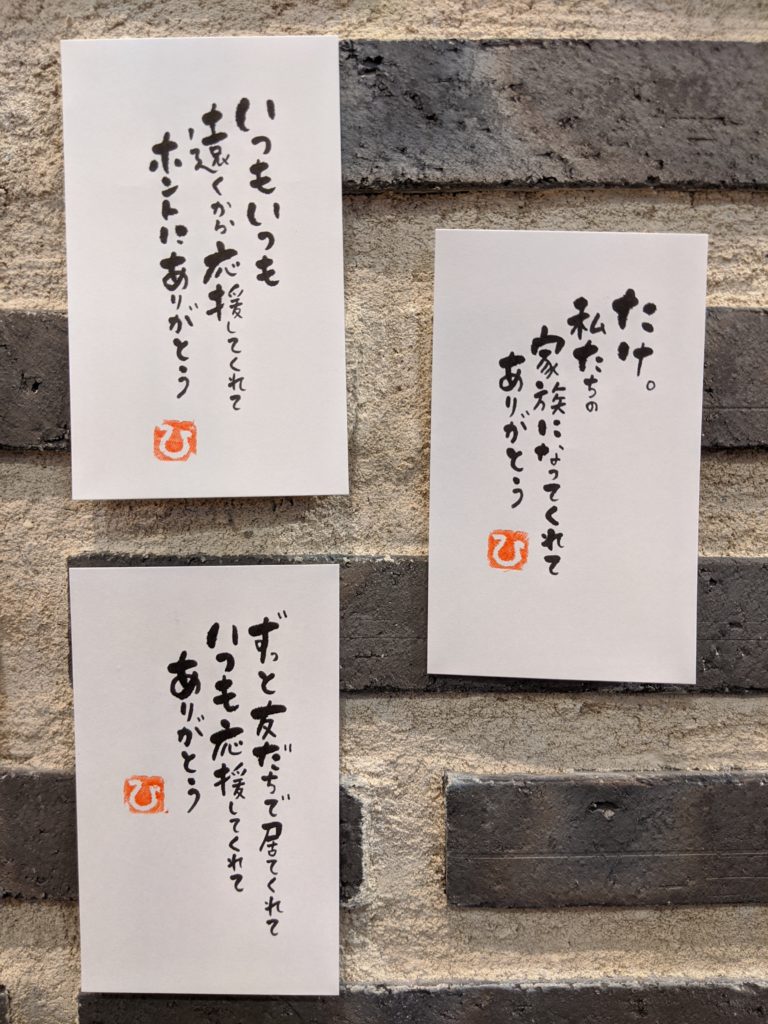 いつもいつも
遠くから応援してくれて
ホントにありがとう
ひ
たけ。
私たちの
家族になってくれて
ありがとう
ひ
ずっと友だちで居てくれて
いつも応援してくれて
ありがとう
ひ